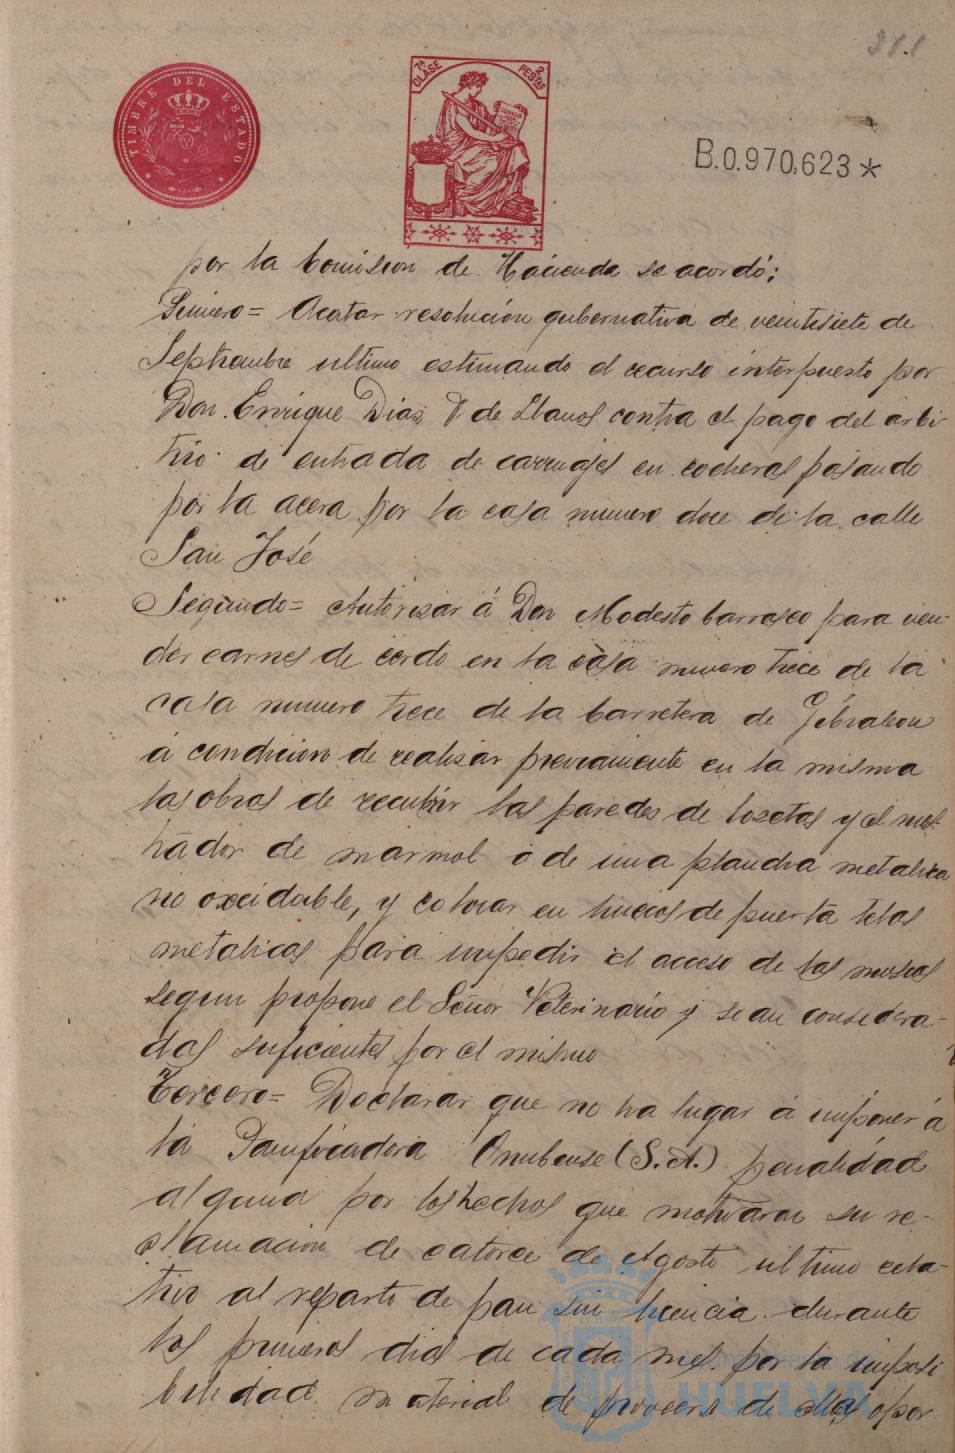 311
TIMBRE DEL ESTADO
7ª CLASE 2 PESTAS
B.0.970,623*
por la Comision de Hacienda se acordó:
Primero= Acatar resolución gubernativa de veintisiete de
Septiembre ultimo estimando el recurso interpuesto por
Don Enrique Dias, F de Llanos contra el pago del arbi-
trio de entrada de carruajes en cocheras pasando
por la acera por la casa numero doce de la calle
San José
Segundo= Autorizar á Don Modesto Carrasco para ven-
der carnes de cerdo en la casa numero trece de la
casa numero trece de la Carretera de Gibraleon
á condicion de realizar previamente en la misma
las obras de recubrir las paredes de losetas y el mos-
trador de marmol ó de una plancha metalica
no oxcidable, y colocar en huecos de puerta telas
metalicas para impedir el acceso de las moscas
segun propone el Señor Veterinario y sean considera-
das suficientes por el mismo
Tercero= Declarar que no ha lugar á imponer á
la Panificadora Onubense (S.A.) penalidad
alguna por los hechos que motivaron su re-
clamacion de catorce de Agosto ultimo rela-
tivo al reparto de pan sin licencia durante
los primeros dias de cada mes por la imposi
bilidad material de proveerse de ellas o por
HUELVA